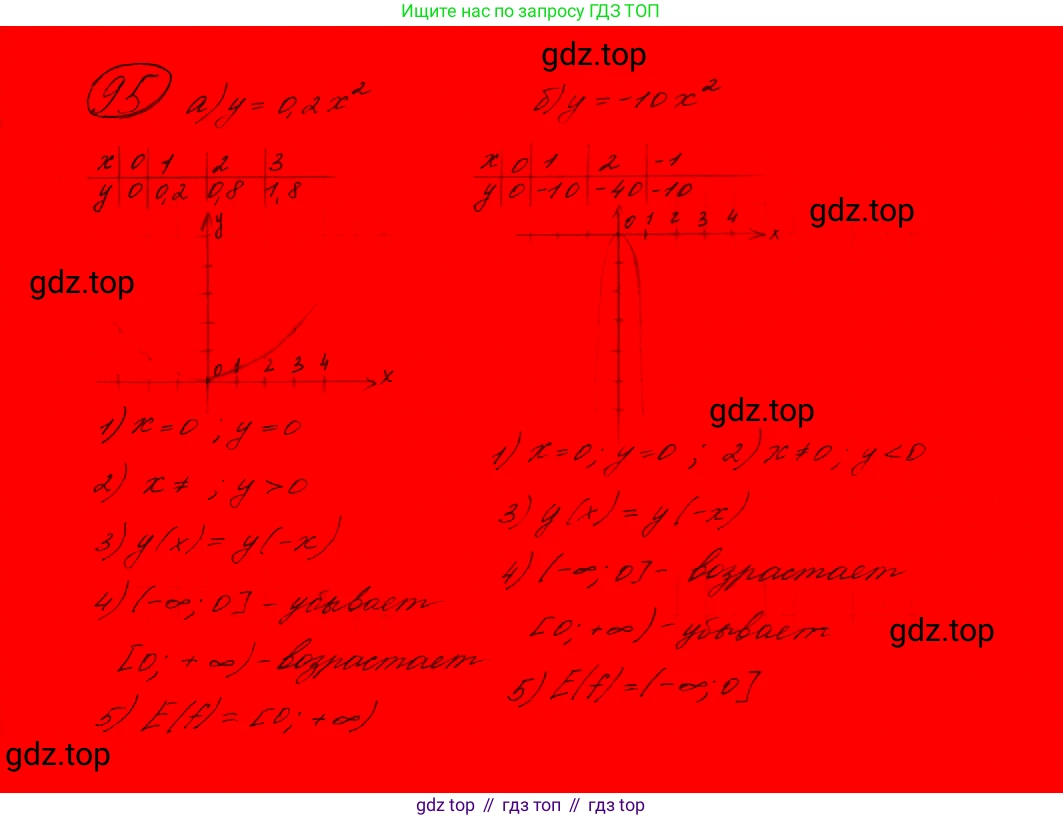 Ищите нас по запросу ГДЗ ТОП
gdz.top
95 а) y = 0,2x²
x 0 1 2 3
y 0 0,2 0,8 1,8
y
0 1 2 3 4 x
1) x = 0 ; y = 0
2) x ≠ ; y > 0
3) y(x) = y(-x)
4) (-∞; 0] - убывает
[0; +∞) - возрастает
5) E(f) = [0; +∞)
б) y = -10x²
x 0 1 2 -1
y 0 -10 -40 -10
0 1 2 3 4 x
1) x = 0; y = 0 ; 2) x ≠ 0; y < 0
3) y(x) = y(-x)
4) (-∞; 0] - возрастает
[0; +∞) - убывает
5) E(f) = (-∞; 0]
gdz.top
gdz.top
gdz.top
gdz.top
gdz.top
gdz top // гдз топ // гдз top